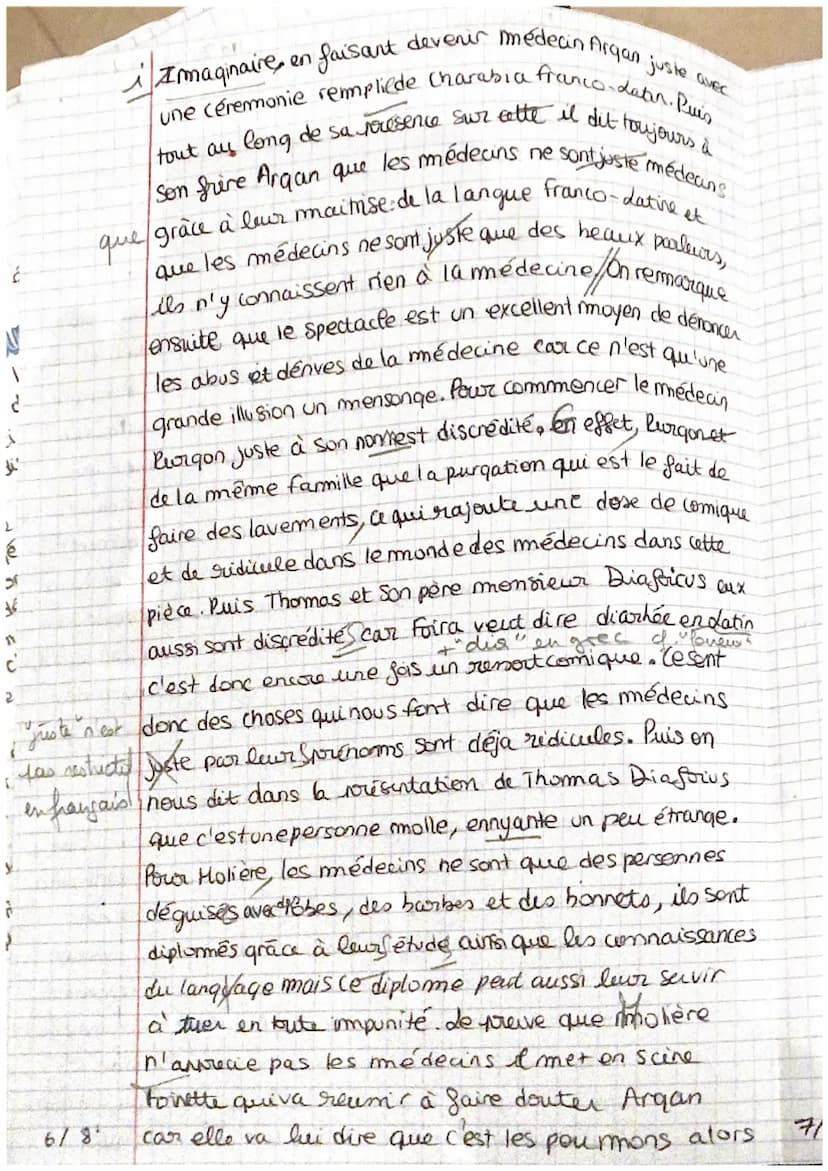 i Imaginaire, en faisant devenir médecin Argan juste avec
une céremonie rempliede charabia franco-latin. Puis
tout au long de sa présence sur cette il dit toujours à
son frère Argan que les médecins ne sont juste médecins
que grâce à leur maitrise de la langue franco-latine et
que les médecins ne sont juste que des beaux parleurs,
ils n'y connaissent rien à la médecine,//On remarque
ensuite que le spectacle est un excellent moyen de dénoncer
les abus et dérives de la médecine car ce n'est qu'une
grande illusion un mensonge. Pour commencer le médecin
Purgon juste à son nom est discrédité, en effet, Purgon et
de la même famille que la purgation qui est le fait de
faire des lavements, ce qui rajoute une dose de comique
et de ridicule dans le monde des médecins dans cette
pièce. Puis Thomas et son père monsieur Diafoirus eux
aussi sont discrédités car Foira veut dire diarhée en latin
+ "dia" en grec cf.
c'est donc encore une fois un ressort comique. Ce sont
donc des choses qui nous font dire que les médecins
"juste" n'est
juste par leurs prénoms sont déja ridicules. Puis on
pas restrictif
nous dit dans la présentation de Thomas Diafoirus
en français
que c'est une personne molle, ennyante un peu étrange.
Pour Molière, les médecins ne sont que des personnes
déguisés avec robes, des barbes et des bonnets, ils sont
diplomés grâce à leurs études ainsi que les connaissances
du language mais ce diplome peut aussi leur servir
à tuer en toute impunité. Le preuve que Molière
n'apprecie pas les médecins il met en scène
Toinette qui va reussir à faire douter Argan
6/8 car elle va lui dire que c'est les poumons alors 7/